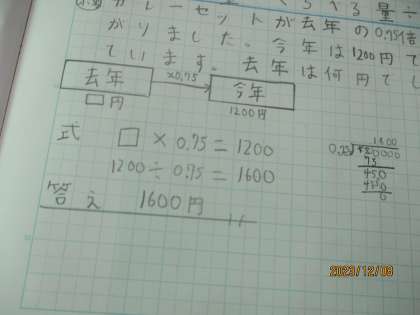 カレーセットが去年の0.75倍
がりました。今年は1200円で
ています。去年は何円でし
去年
×0.75
今年
□円
1200円
式 □×0.75=1200
1200÷0.75=1600
答え 1600円
2023/12/08